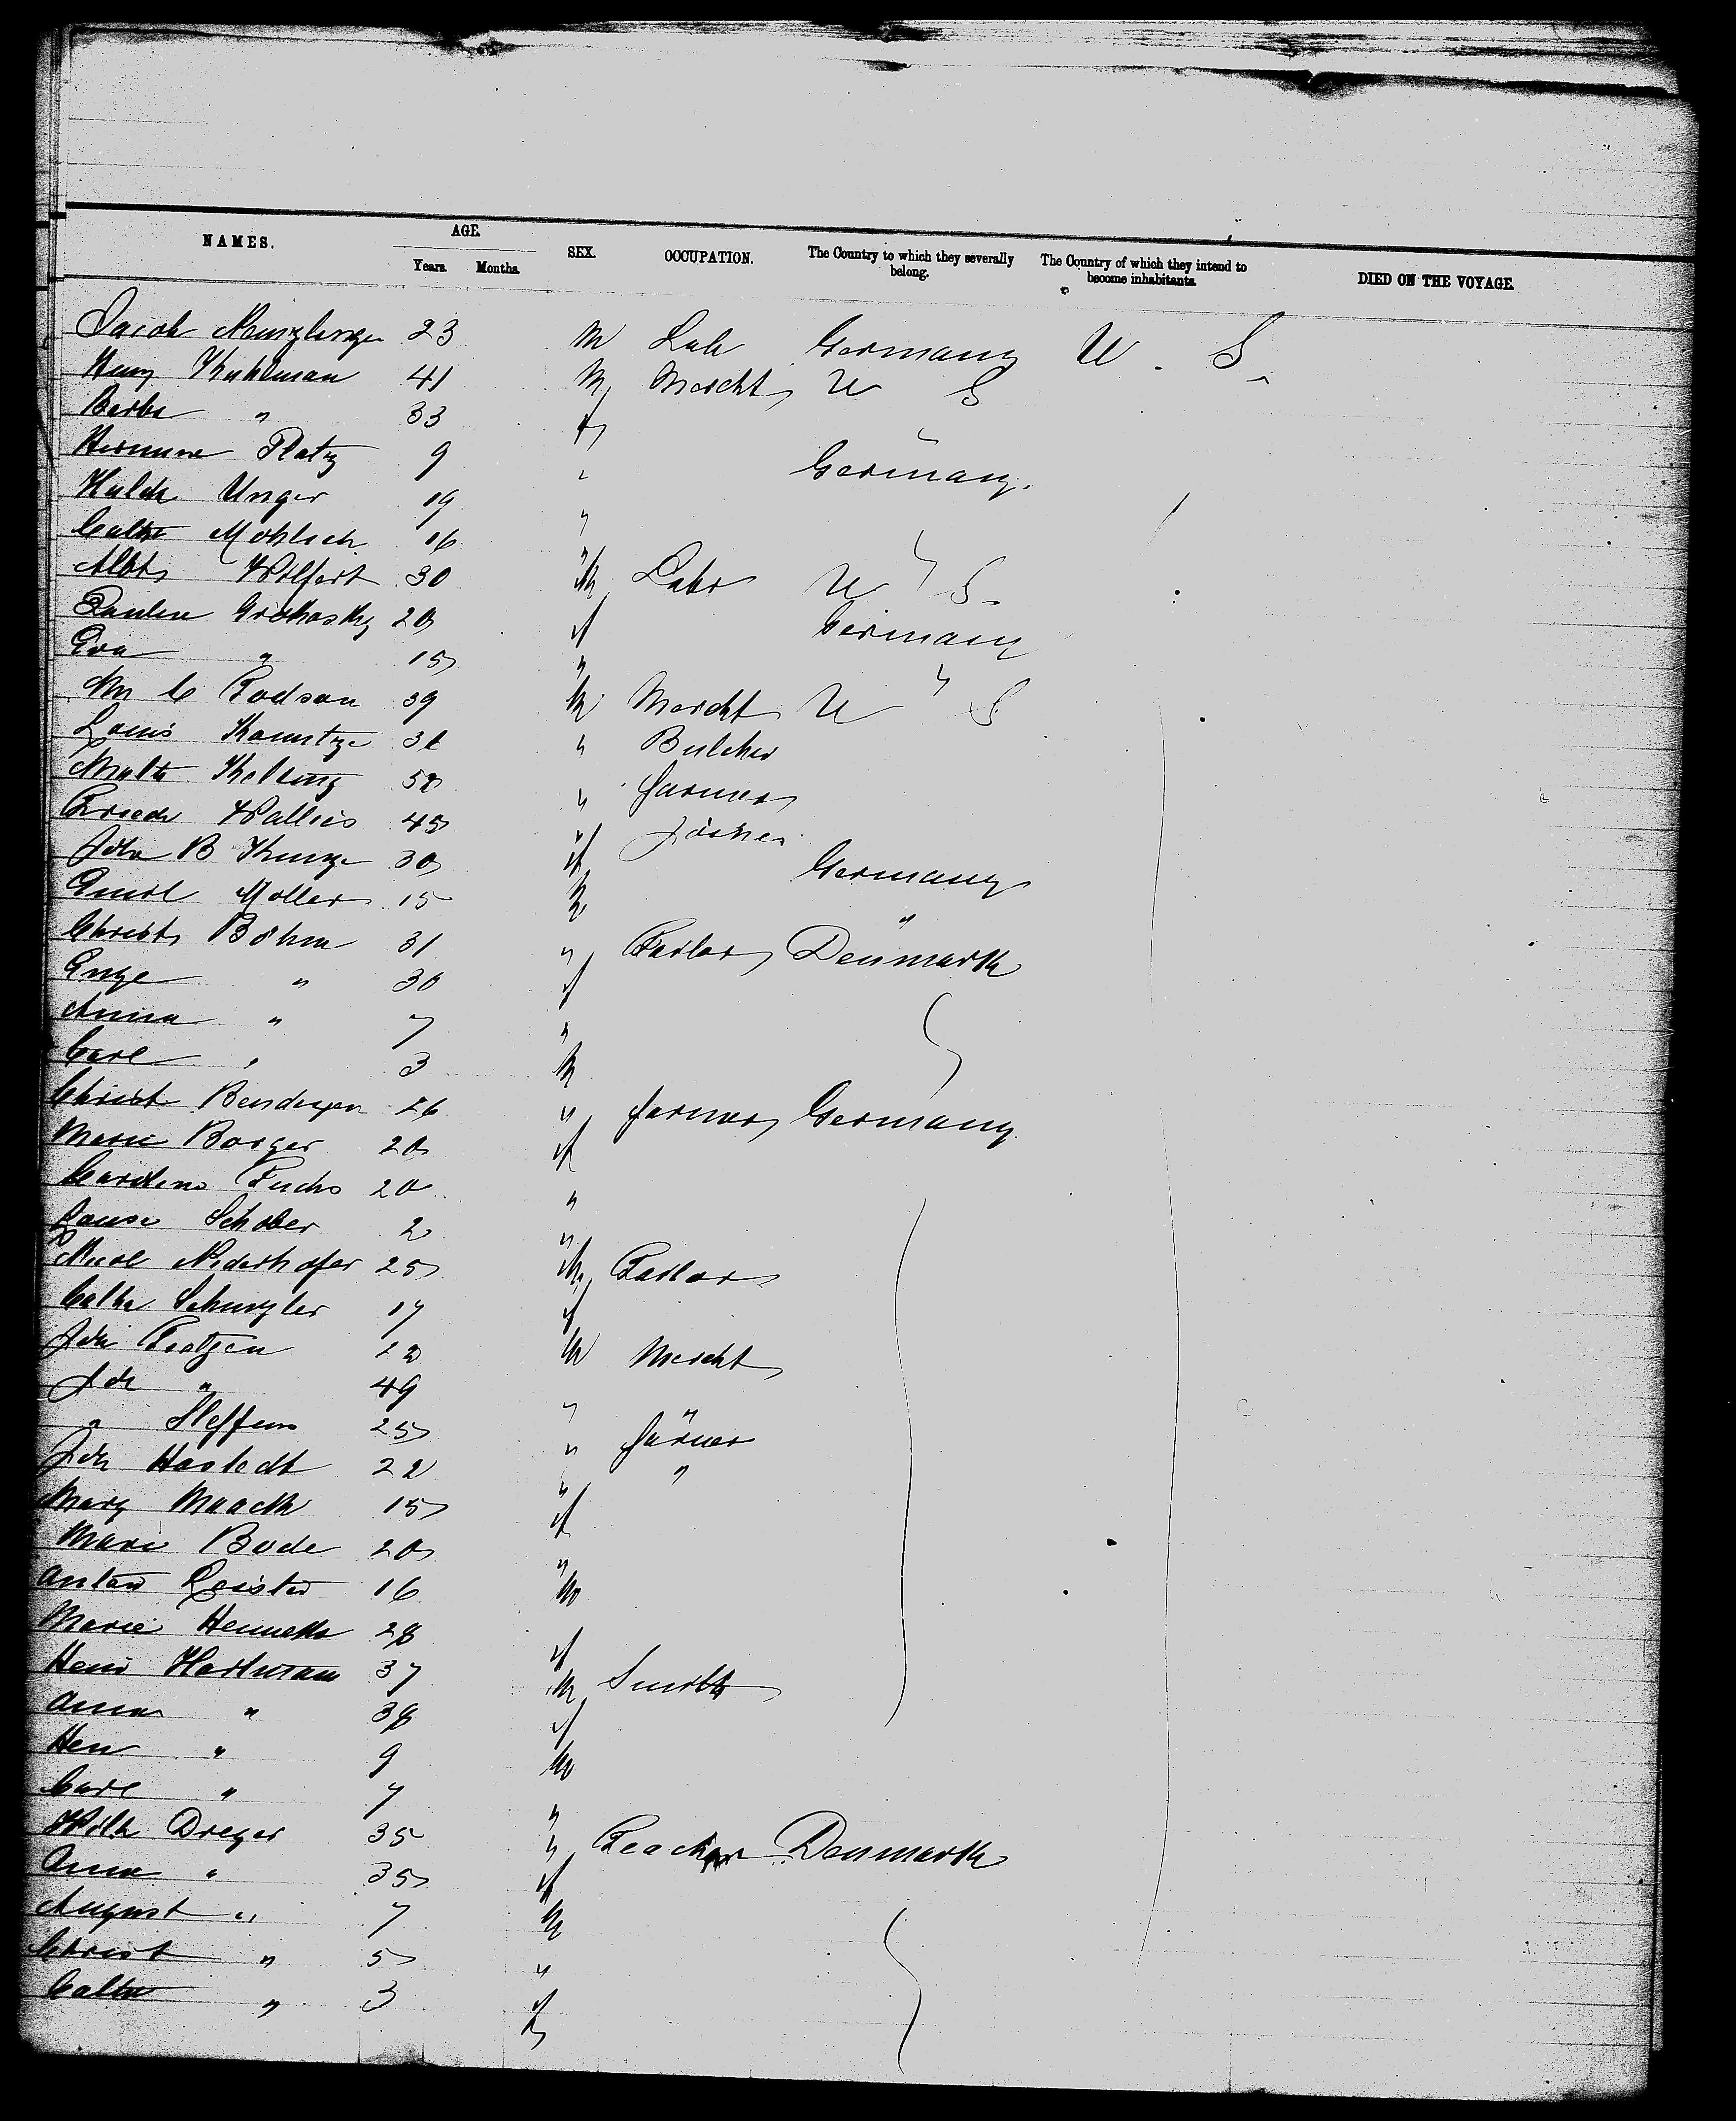 NAMES. AGE. SEX. OCCUPATION. The Country to which they severally belong. The Country of which they intend to become inhabitants. DIED ON THE VOYAGE.
Years. Months.
Jacob 23 M Lab Germany U. S.
Henry Kuhlman 41 M Mercht U S
Barba " 33 f "
Hermine Platz 9 " Germany.
Hulda Unger 19 "
Cathe Mohlich 16 "
Albt Wolfert 30 M Labr U S.
Pauline Grohosky 20 f Germany
Eva " 15 "
Wm C Dodson 39 M Mercht U S
Louis Kountze 31 " Butcher
Malte 52 " farmer
Friedr Wallies 45 "
Joh B Kunze 30 f Germany
Emil Moller 15 M "
Christ Böhm 31 " Tailor Denmark
Enge " 30 f
Anna " 7 "
Carl " 3 M
Christ 26 " farmer Germany
Marie Borger 20 f
Caroline Fuchs 20 "
Louise Schober 2 "
Nicol Niderhofer 25 M Tailor
Cathe 17 f
Joh Tietjen 22 M Mercht
Joh " 49 " "
" Steffens 25 " farmer
Joh Hastedt 22 " "
Mary Maack 15 f
Marie Bode 20 "
Anton Leister 16 M
Marie 28 f
Henr Hartmann 37 M Smith
Anna " 38 f
Hen " 9 M
Carl " 7 "
Wilh Dreyer 35 " Teacher Denmark
Anna " 35 f
August " 7 M
Christ " 5 "
Cathe " 3 f